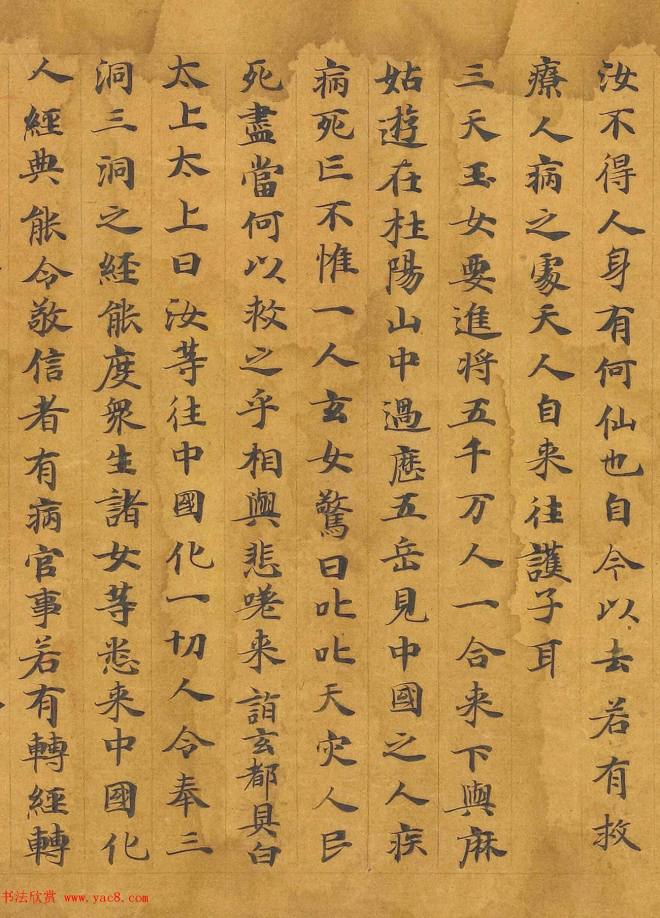 汝不得人身有何仙也自今以去若有救
療人病之處天人自来往護子耳
三天玉女要進将五千万人一合来下與麻
姑遊在柱陽山中過歷五岳見中國之人疾
病死亡不惟一人玄女驚曰叱叱天灾人民
死盡當何以救之乎相與悲嘆来詣玄都具白
太上太上曰汝等往中國化一切人令奉三
洞三洞之經能度衆生諸女等悉来中國化
人經典能令敬信者有病官事若有轉經轉
书法欣赏 www.yac8.com